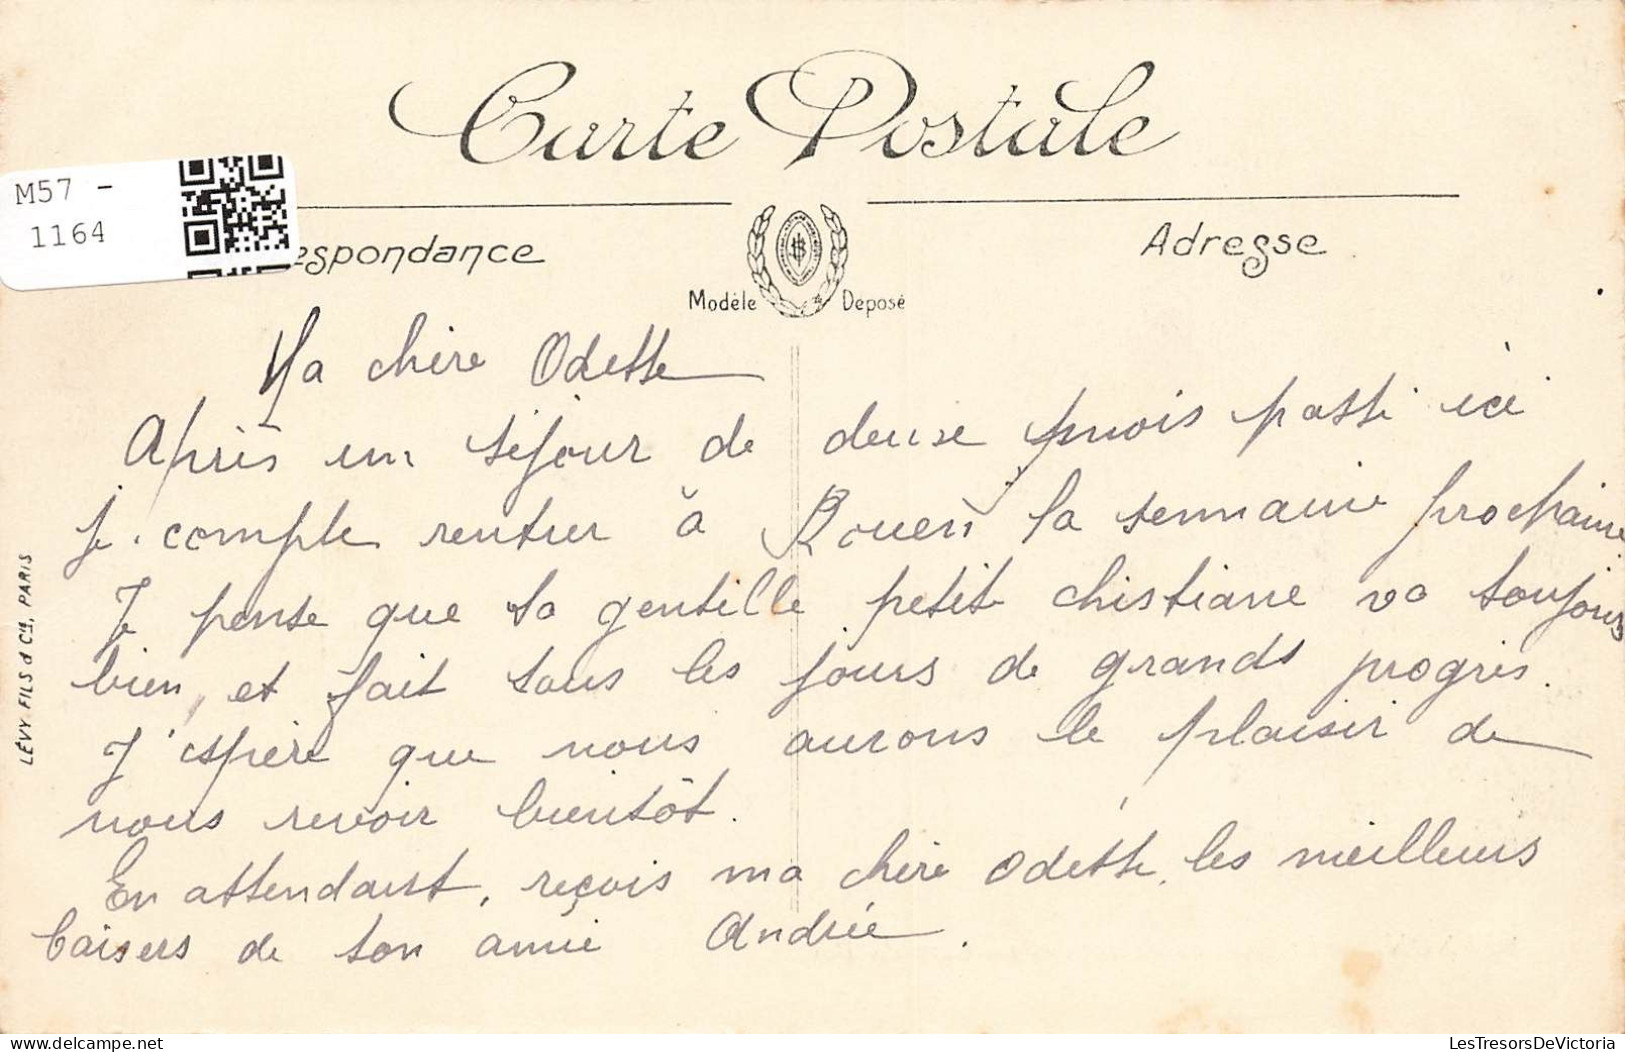 Carte Postale
M57 -
1164
espondance
Adresse
Modèle Déposé
Ma chère Odette
Après un séjour de deuxe mois passé ici
je compte rentrer à Rouen la semaine prochaine
Je pense que ta gentille petite Chistiane va toujours
bien, et fait tous les jours de grands progrès.
J'espère que nous aurons le plaisir de
nous revoir bientôt.
En attendant, reçois ma chère Odette, les meilleurs
baisers de ton amie Andrée.
LÉVY FILS & Cie, PARIS
LesTresorsDeVictoria
delcampe.net